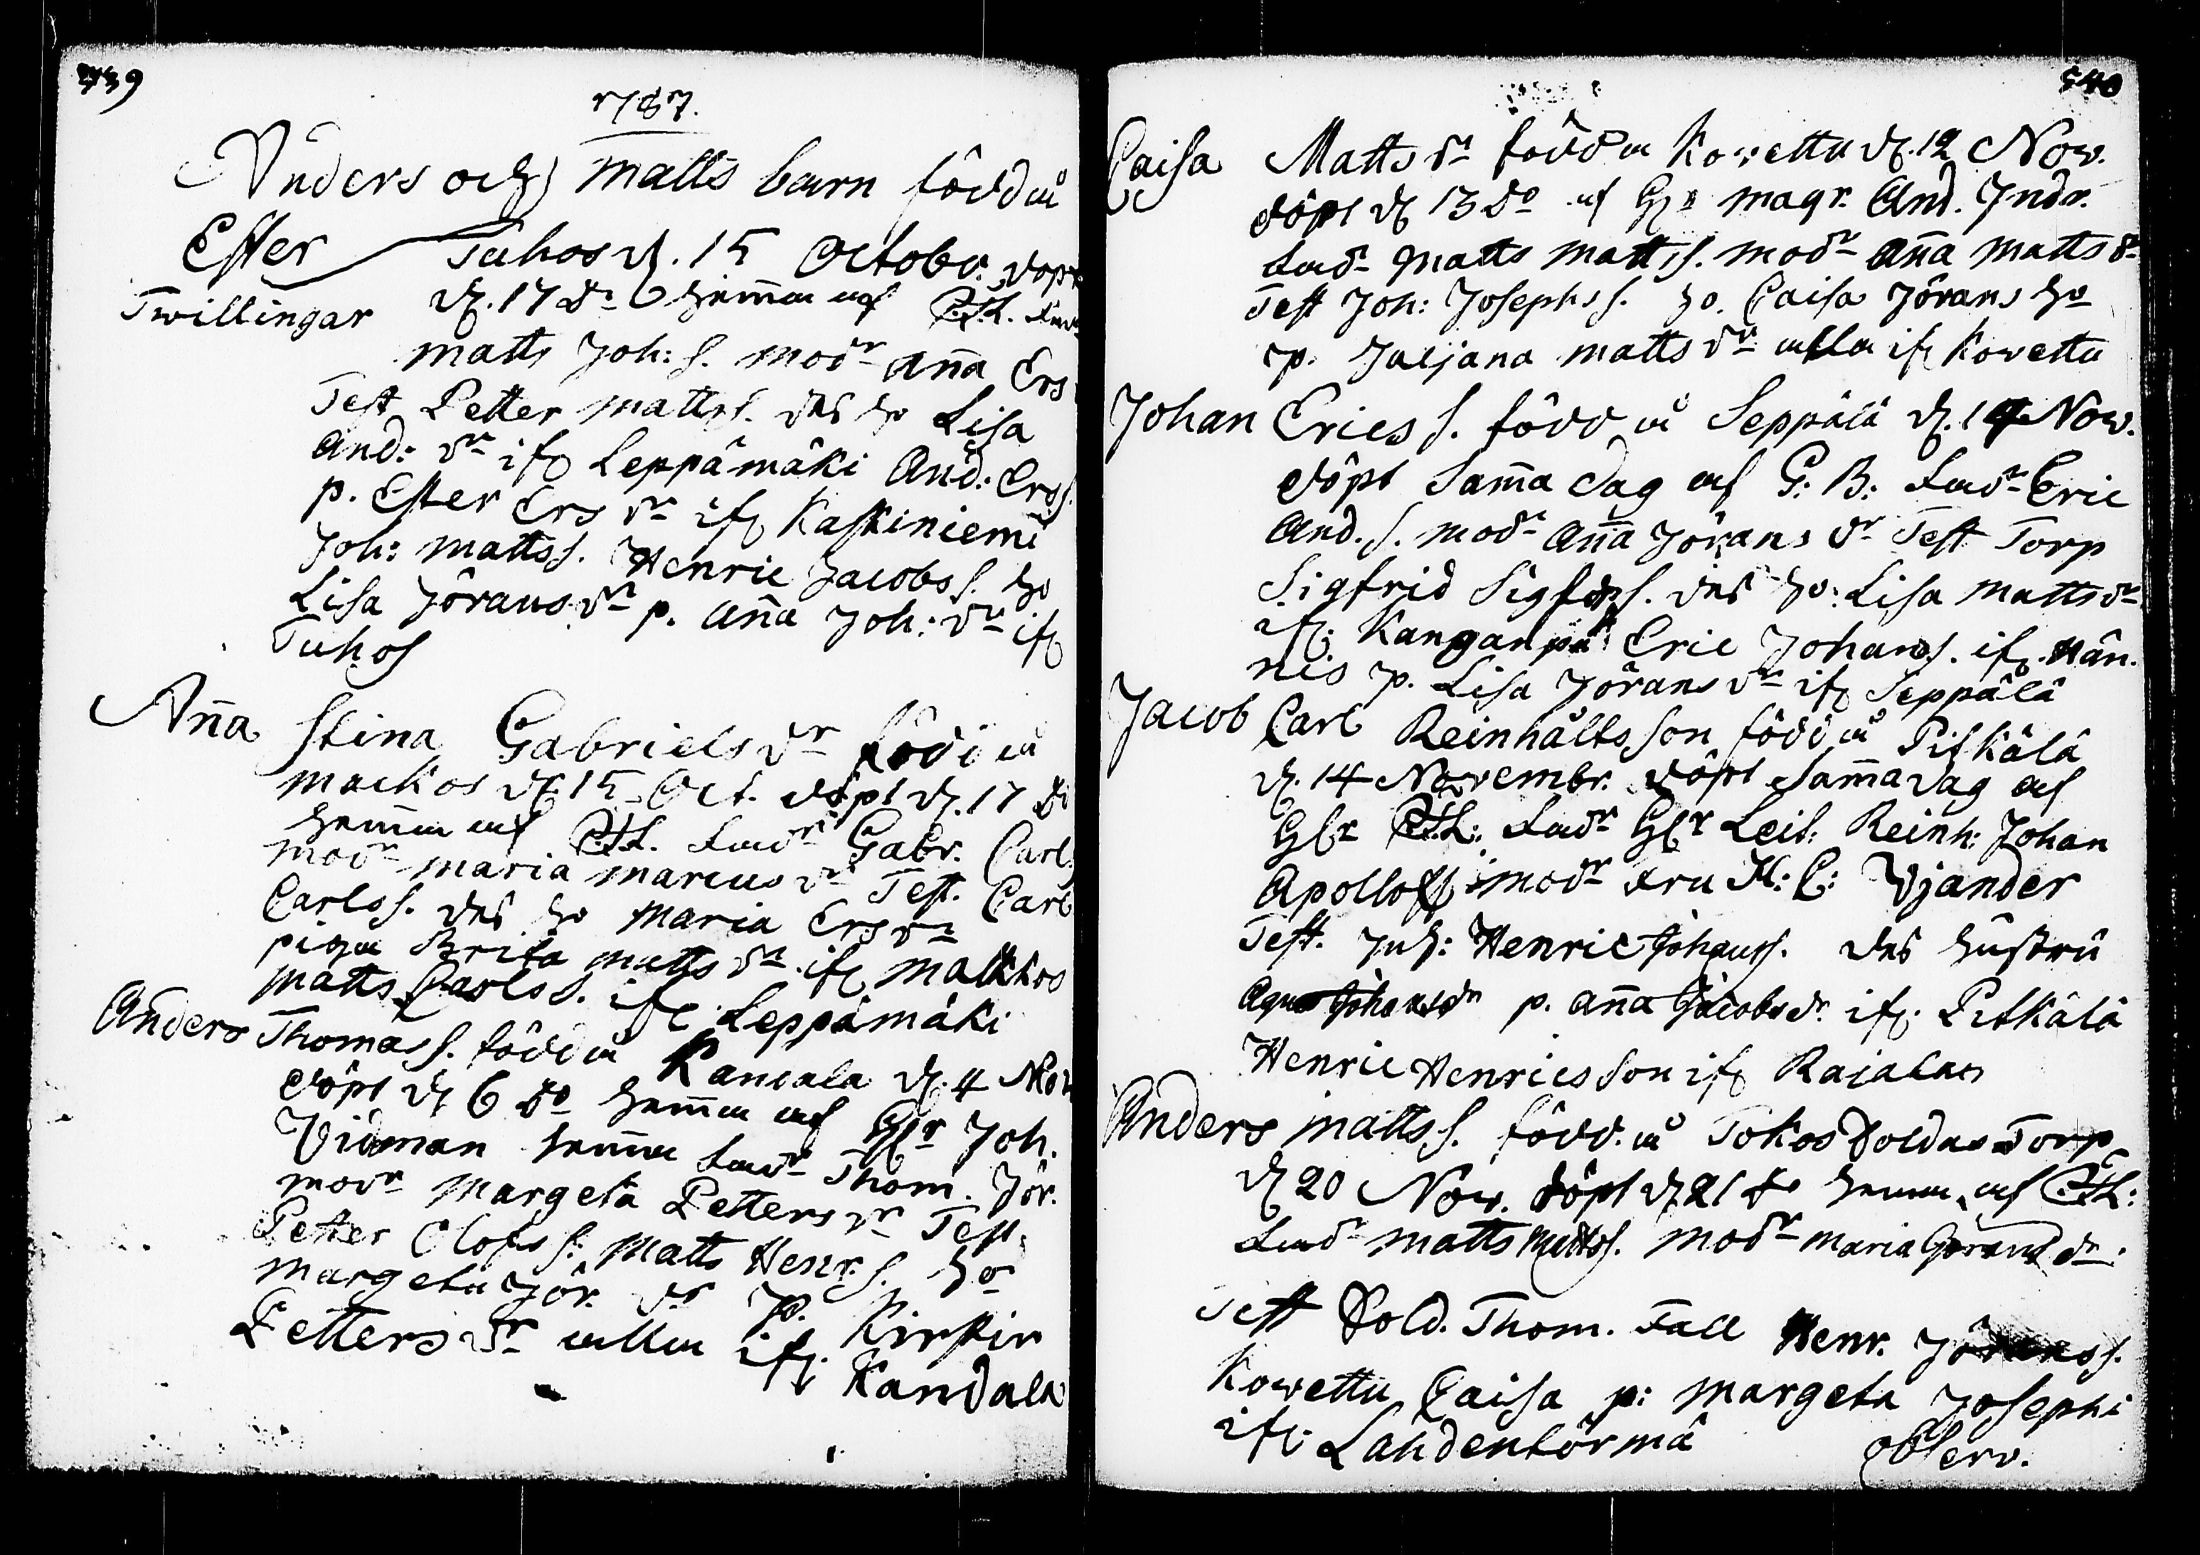 739
1787.
Anders och Matts barn född å
Ester Tuhos d. 15 Octobr. döpt
Twillingar d. 17 do hemma af C.H. Fadr
Matts Joh: s. modr Anna Ers
Test Petter Mattss. des ho Lisa
And: dr ifr Leppämäki And: Erss.
p. Ester Ers dr ifr Kaskiniemi
Joh: Mattss. Henric Jacobs s. ho
Lisa Jörans dr p. Anna Joh: dr ifr
Tuhos
Anna Stina Gabriels dr född å
Mackos d. 15 Oct. döpt d. 17 do
hemma af C.H. Fadr Gabr. Carls
modr Maria Marcus dr Test. Carl
Carlss. des ho Maria Ers dr
piga Brita Matts dr ifr Mackos
Matts Carls s. ifr Leppämäki
Anders Thomas s. född å Kancala d. 4 Nov
döpt d. 6 do hemma af Hr Joh.
Widman hemma Fadr Thom. Jör.
modr Margeta Petters dr Test
Petter Olofs s. Matts Henr. s. ho
Margeta Jör. dr p. Kirstin
Petters dr alla ifr. Kandala
540
Caisa Matts dr född å Kowettu d. 12 Nov.
döpt d. 13 do af Hr Magr. And. Indr.
Fadr Matts Mattss. modr Anna Matts dr
Test Joh: Josephs s. ho. Caisa Jörans ho
p. Juljana Matts dr alla ifr Kowettu
Johan Erics s. född å Seppälä d. 14 Nov.
döpt samma dag af G: B: Fadr Eric
And. s. modr Anna Jörans dr Test Torp
Sigfrid Sigfrids s. des ho: Lisa Matts dr
ifr: Kanganpä Eric Johans s. ifr. Hän.
nis p. Lisa Jörans dr ifr Seppälä
Jacob Carl Reinhålts son född å Pitkälä
d. 14 Novembr. döpt samma dag af
Hr C.H.: Fadr Hr Leit: Reinh: Johan
Apolloff modr Fru H: C: Wjander
Test. Inh: Henric Johanss. des hustru
Agnes Johans dr p. Anna Jacobs dr ifr. Pitkälä
Henric Henrics son ifr Rajalax
Anders Matts s. född. å Tokos Soldas Torp
d. 20 Nov. döpt d. 21 do hemma af C.H:
Fadr Matts Matts s. modr Maria Görans dr
Test Sold. Thom. Fall Henr. Jöranss.
Kowettu Caisa p: Margeta Josephi
ifr. Lahdentörmä
observ.